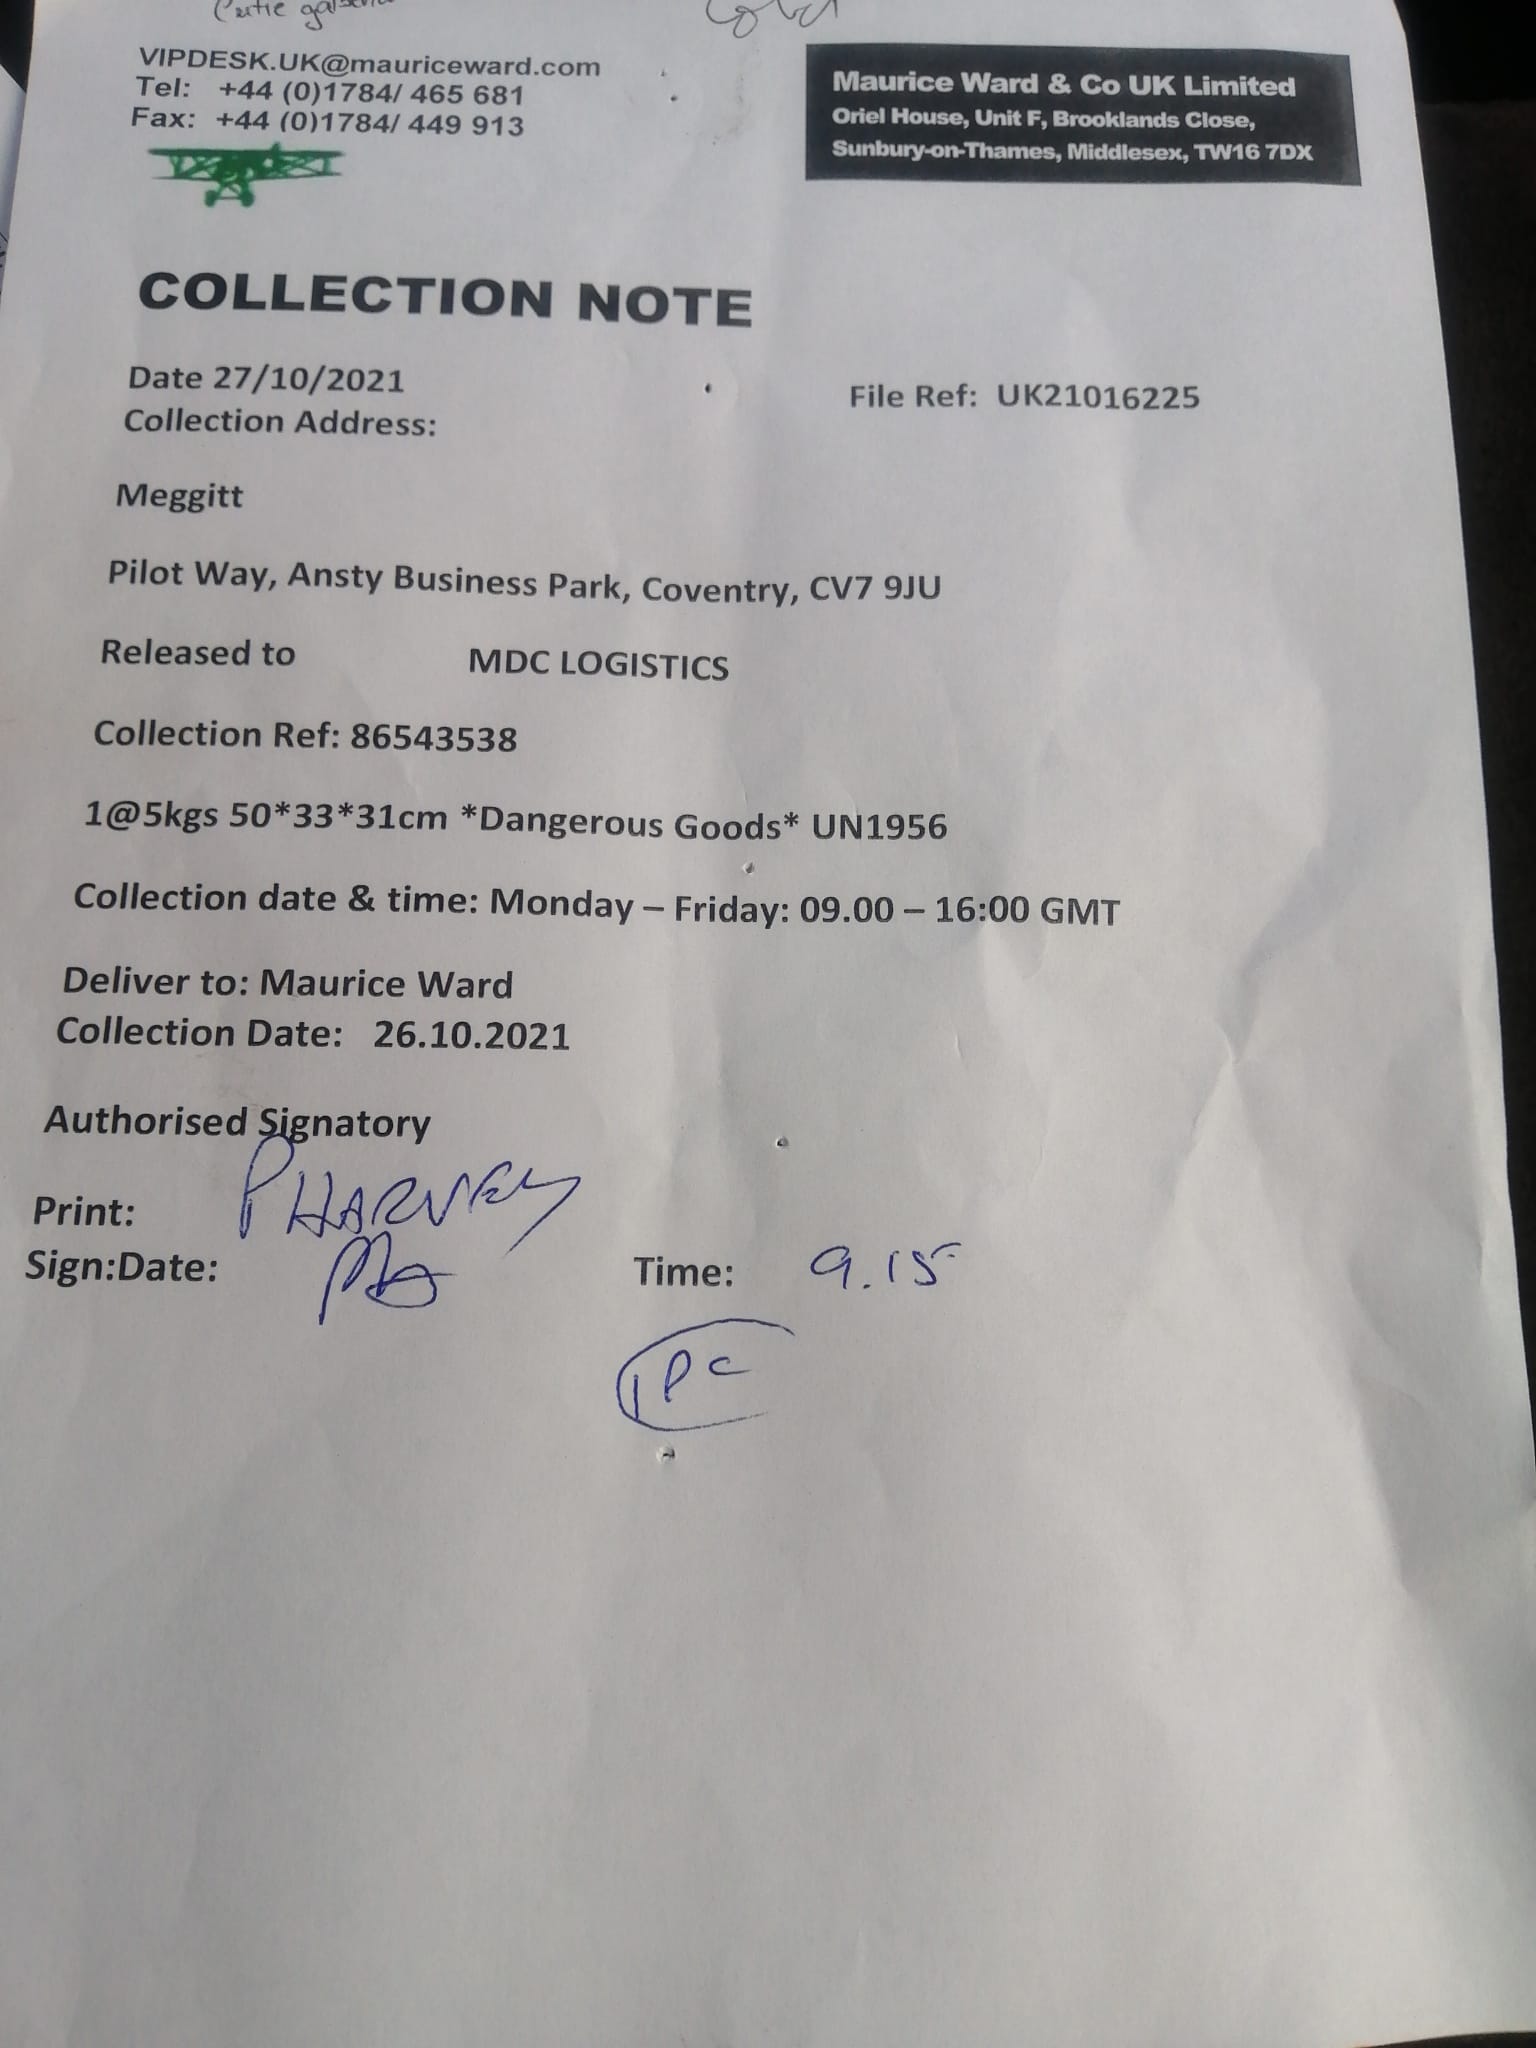 VIPDESK.UK@mauriceward.com
Tel: +44 (0)1784/ 465 681
Fax: +44 (0)1784/ 449 913
Maurice Ward & Co UK Limited
Oriel House, Unit F, Brooklands Close,
Sunbury-on-Thames, Middlesex, TW16 7DX
COLLECTION NOTE
Date 27/10/2021
File Ref: UK21016225
Collection Address:
Meggitt
Pilot Way, Ansty Business Park, Coventry, CV7 9JU
Released to MDC LOGISTICS
Collection Ref: 86543538
1@5kgs 50*33*31cm *Dangerous Goods* UN1956
Collection date & time: Monday – Friday: 09.00 – 16:00 GMT
Deliver to: Maurice Ward
Collection Date: 26.10.2021
Authorised Signatory
Print: P HARVEY
Sign:Date: Time: 9.15
1 PC